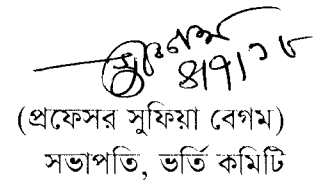 ৪/৭/১৮
(প্রফেসর সুফিয়া বেগম)
সভাপতি, ভর্তি কমিটি